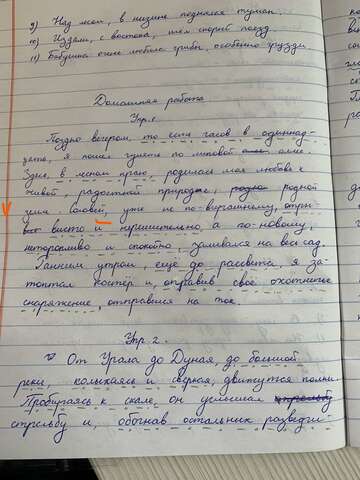 9) Над лесом, в низине поднялся туман.
10) Издали, с востока, шёл скорый поезд.
11) Бабушка очень любила грибы, особенно грузди.
Домашняя работа
Упр. 1.
Поздно вечером, то есть часов в одиннад-
цать, я пошёл гулять по липовой аллее.
Здесь, в лесном краю, родилась моя любовь к
живой, радостной природе, родной
соловей, уже не по-вечернему, отры-
висто и нерешительно а по-ночному,
неторопливо и спокойно, заливался на весь сад.
Ранним утром, ещё до рассвета, я за-
топтал костёр и, отправив своё охотничье
снаряжение, отправился на ток.
Упр. 2.
От Урала до Дуная, до большой
реки, колыхаясь и сверкая, движутся полки.
Пробираясь к скале, он услышал
стрельбу и, обогнав остальных разведчи-